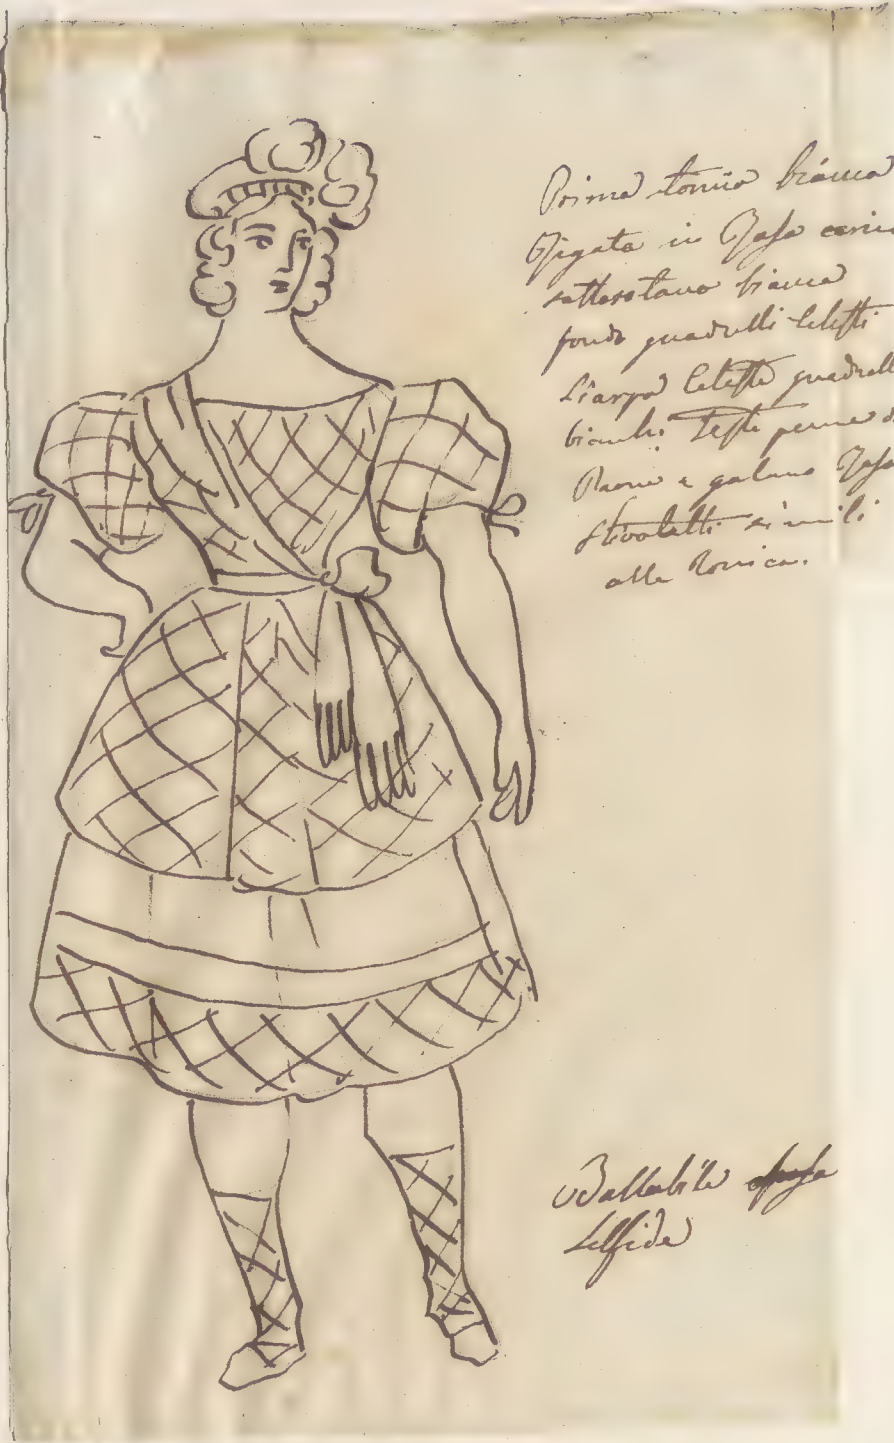 Prima tonica bianca
Rigata in Rasa
sottosotana bianca
fondo quadrelli Celesti
Siarpa Celeste quadrelli
bianchi Teste penne
e galano Rasa
Stivaletti simili
alla Tonica.
Ballabile
Silfide